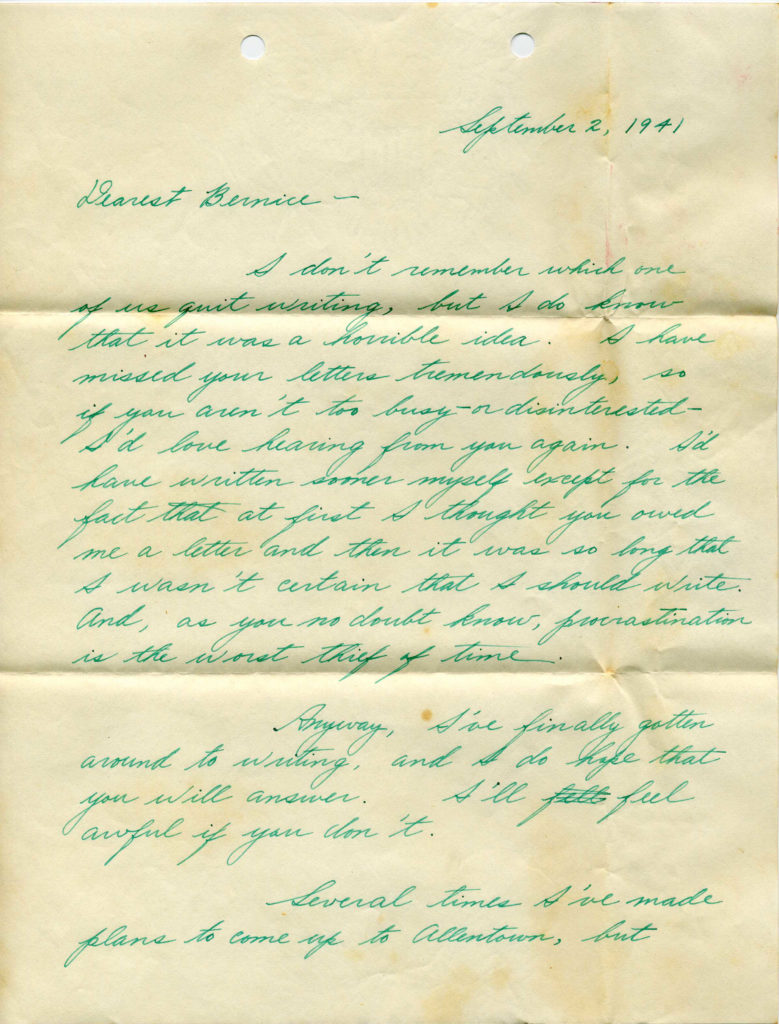 September 2, 1941
Dearest Bernice —
I don't remember which one
of us quit writing, but I do know
that it was a horrible idea. I have
missed your letters tremendously, so
if you aren't too busy - or disinterested -
I'd love hearing from you again. I'd
have written sooner myself except for the
fact that at first I thought you owed
me a letter and then it was so long that
I wasn't certain that I should write.
And, as you no doubt know, procrastination
is the worst thief of time.
Anyway, I've finally gotten
around to writing, and I do hope that
you will answer. I'll felt feel
awful if you don't.
Several times I've made
plans to come up to Allentown, but